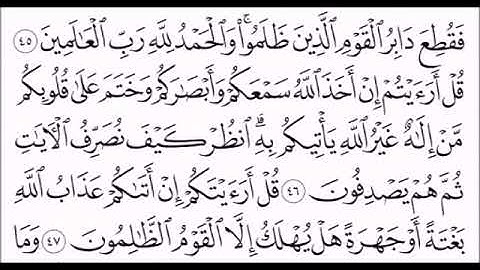 فَقُطِعَ دَابِرُ ٱلْقَوْمِ ٱلَّذِينَ ظَلَمُوا۟ ۚ وَٱلْحَمْدُ لِلَّهِ رَبِّ ٱلْعَـٰلَمِينَ ٤٥
قُلْ أَرَءَيْتُمْ إِنْ أَخَذَ ٱللَّهُ سَمْعَكُمْ وَأَبْصَـٰرَكُمْ وَخَتَمَ عَلَىٰ قُلُوبِكُم
مَّنْ إِلَـٰهٌ غَيْرُ ٱللَّهِ يَأْتِيكُم بِهِ ۗ ٱنظُرْ كَيْفَ نُصَرِّفُ ٱلْـَٔايَـٰتِ
ثُمَّ هُمْ يَصْدِفُونَ ٤٦ قُلْ أَرَءَيْتَكُمْ إِنْ أَتَىٰكُمْ عَذَابُ ٱللَّهِ
بَغْتَةً أَوْ جَهْرَةً هَلْ يُهْلَكُ إِلَّا ٱلْقَوْمُ ٱلظَّـٰلِمُونَ ٤٧ وَمَا